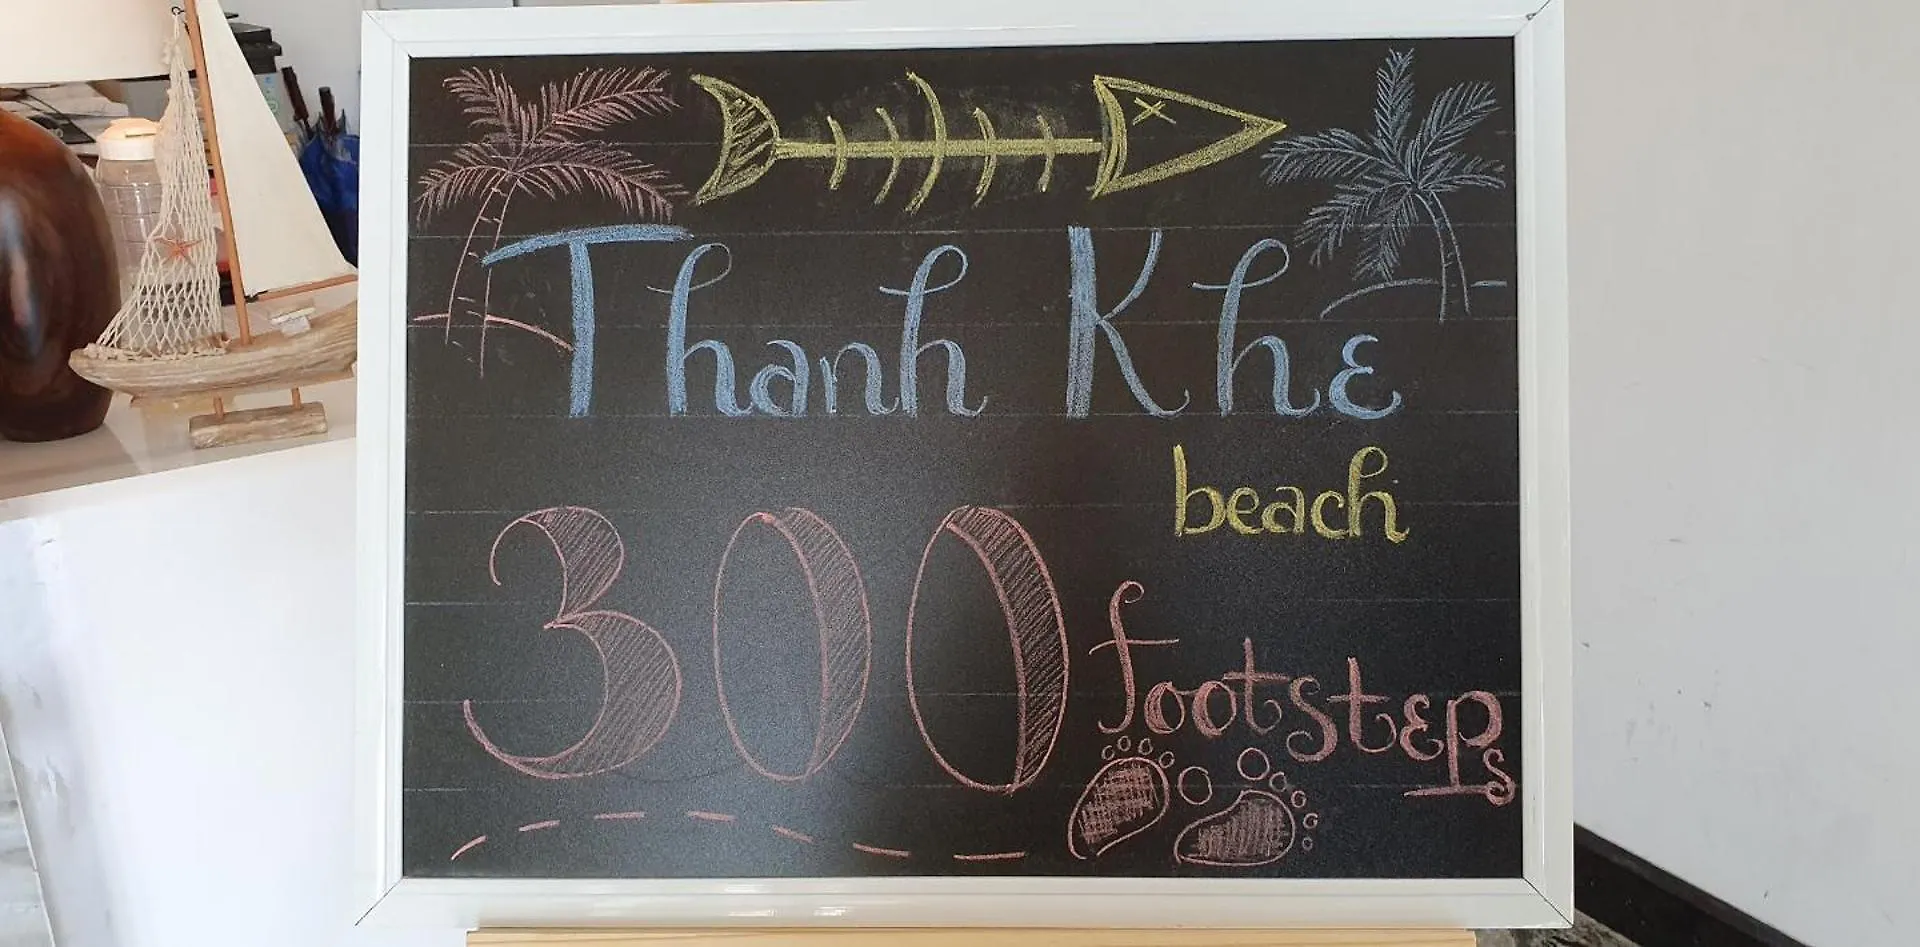 Thanh Khê
beach
300 footsteps